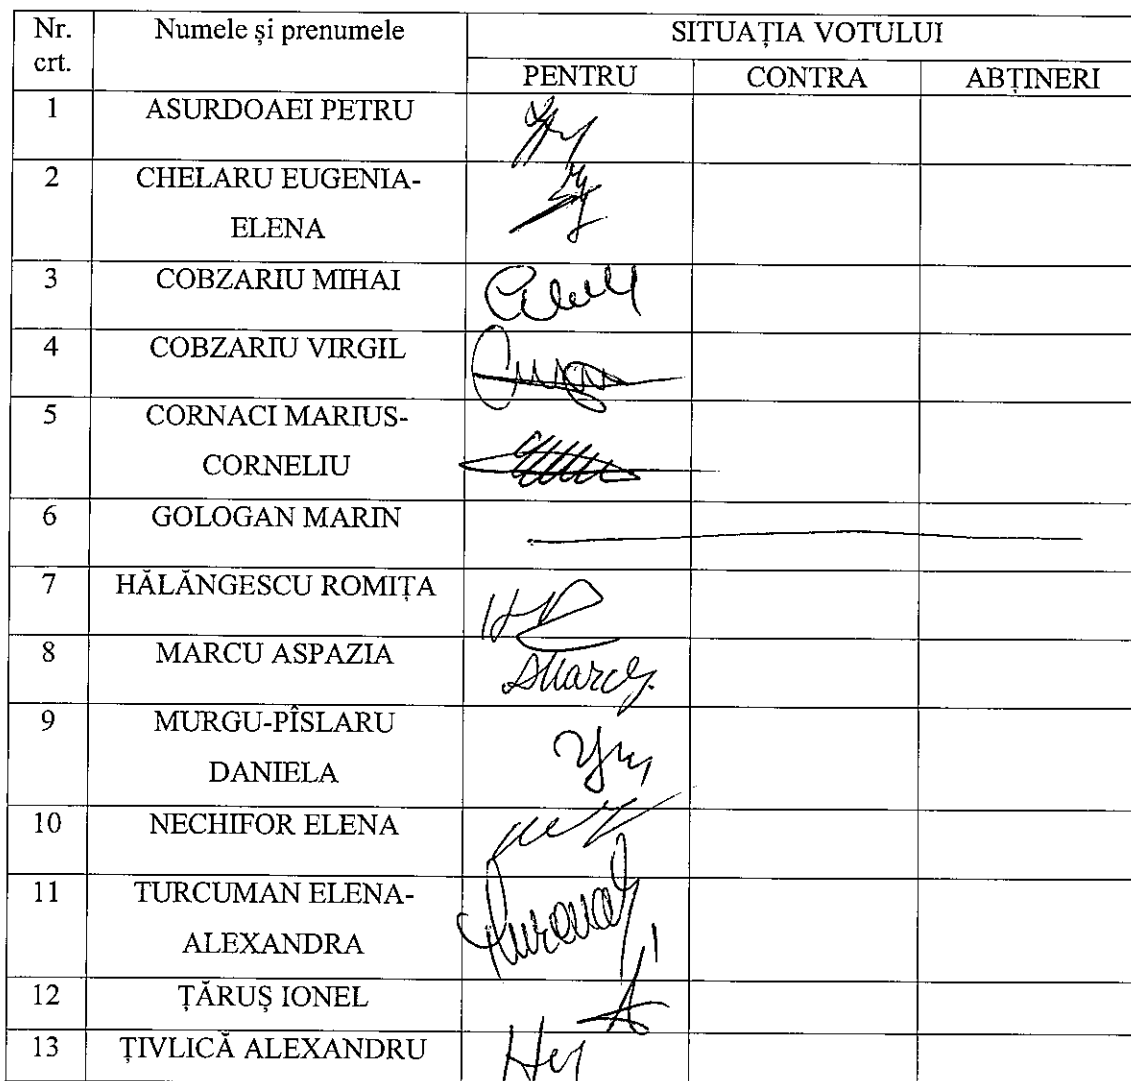 Nr. crt. Numele și prenumele SITUAȚIA VOTULUI
PENTRU CONTRA ABȚINERI
1 ASURDOAEI PETRU
2 CHELARU EUGENIA-
ELENA
3 COBZARIU MIHAI
4 COBZARIU VIRGIL
5 CORNACI MARIUS-
CORNELIU
6 GOLOGAN MARIN
7 HĂLĂNGESCU ROMIȚA
8 MARCU ASPAZIA
AMarcu
9 MURGU-PÎSLARU
DANIELA
10 NECHIFOR ELENA
11 TURCUMAN ELENA-
ALEXANDRA
12 ȚĂRUȘ IONEL
13 ȚIVLICĂ ALEXANDRU